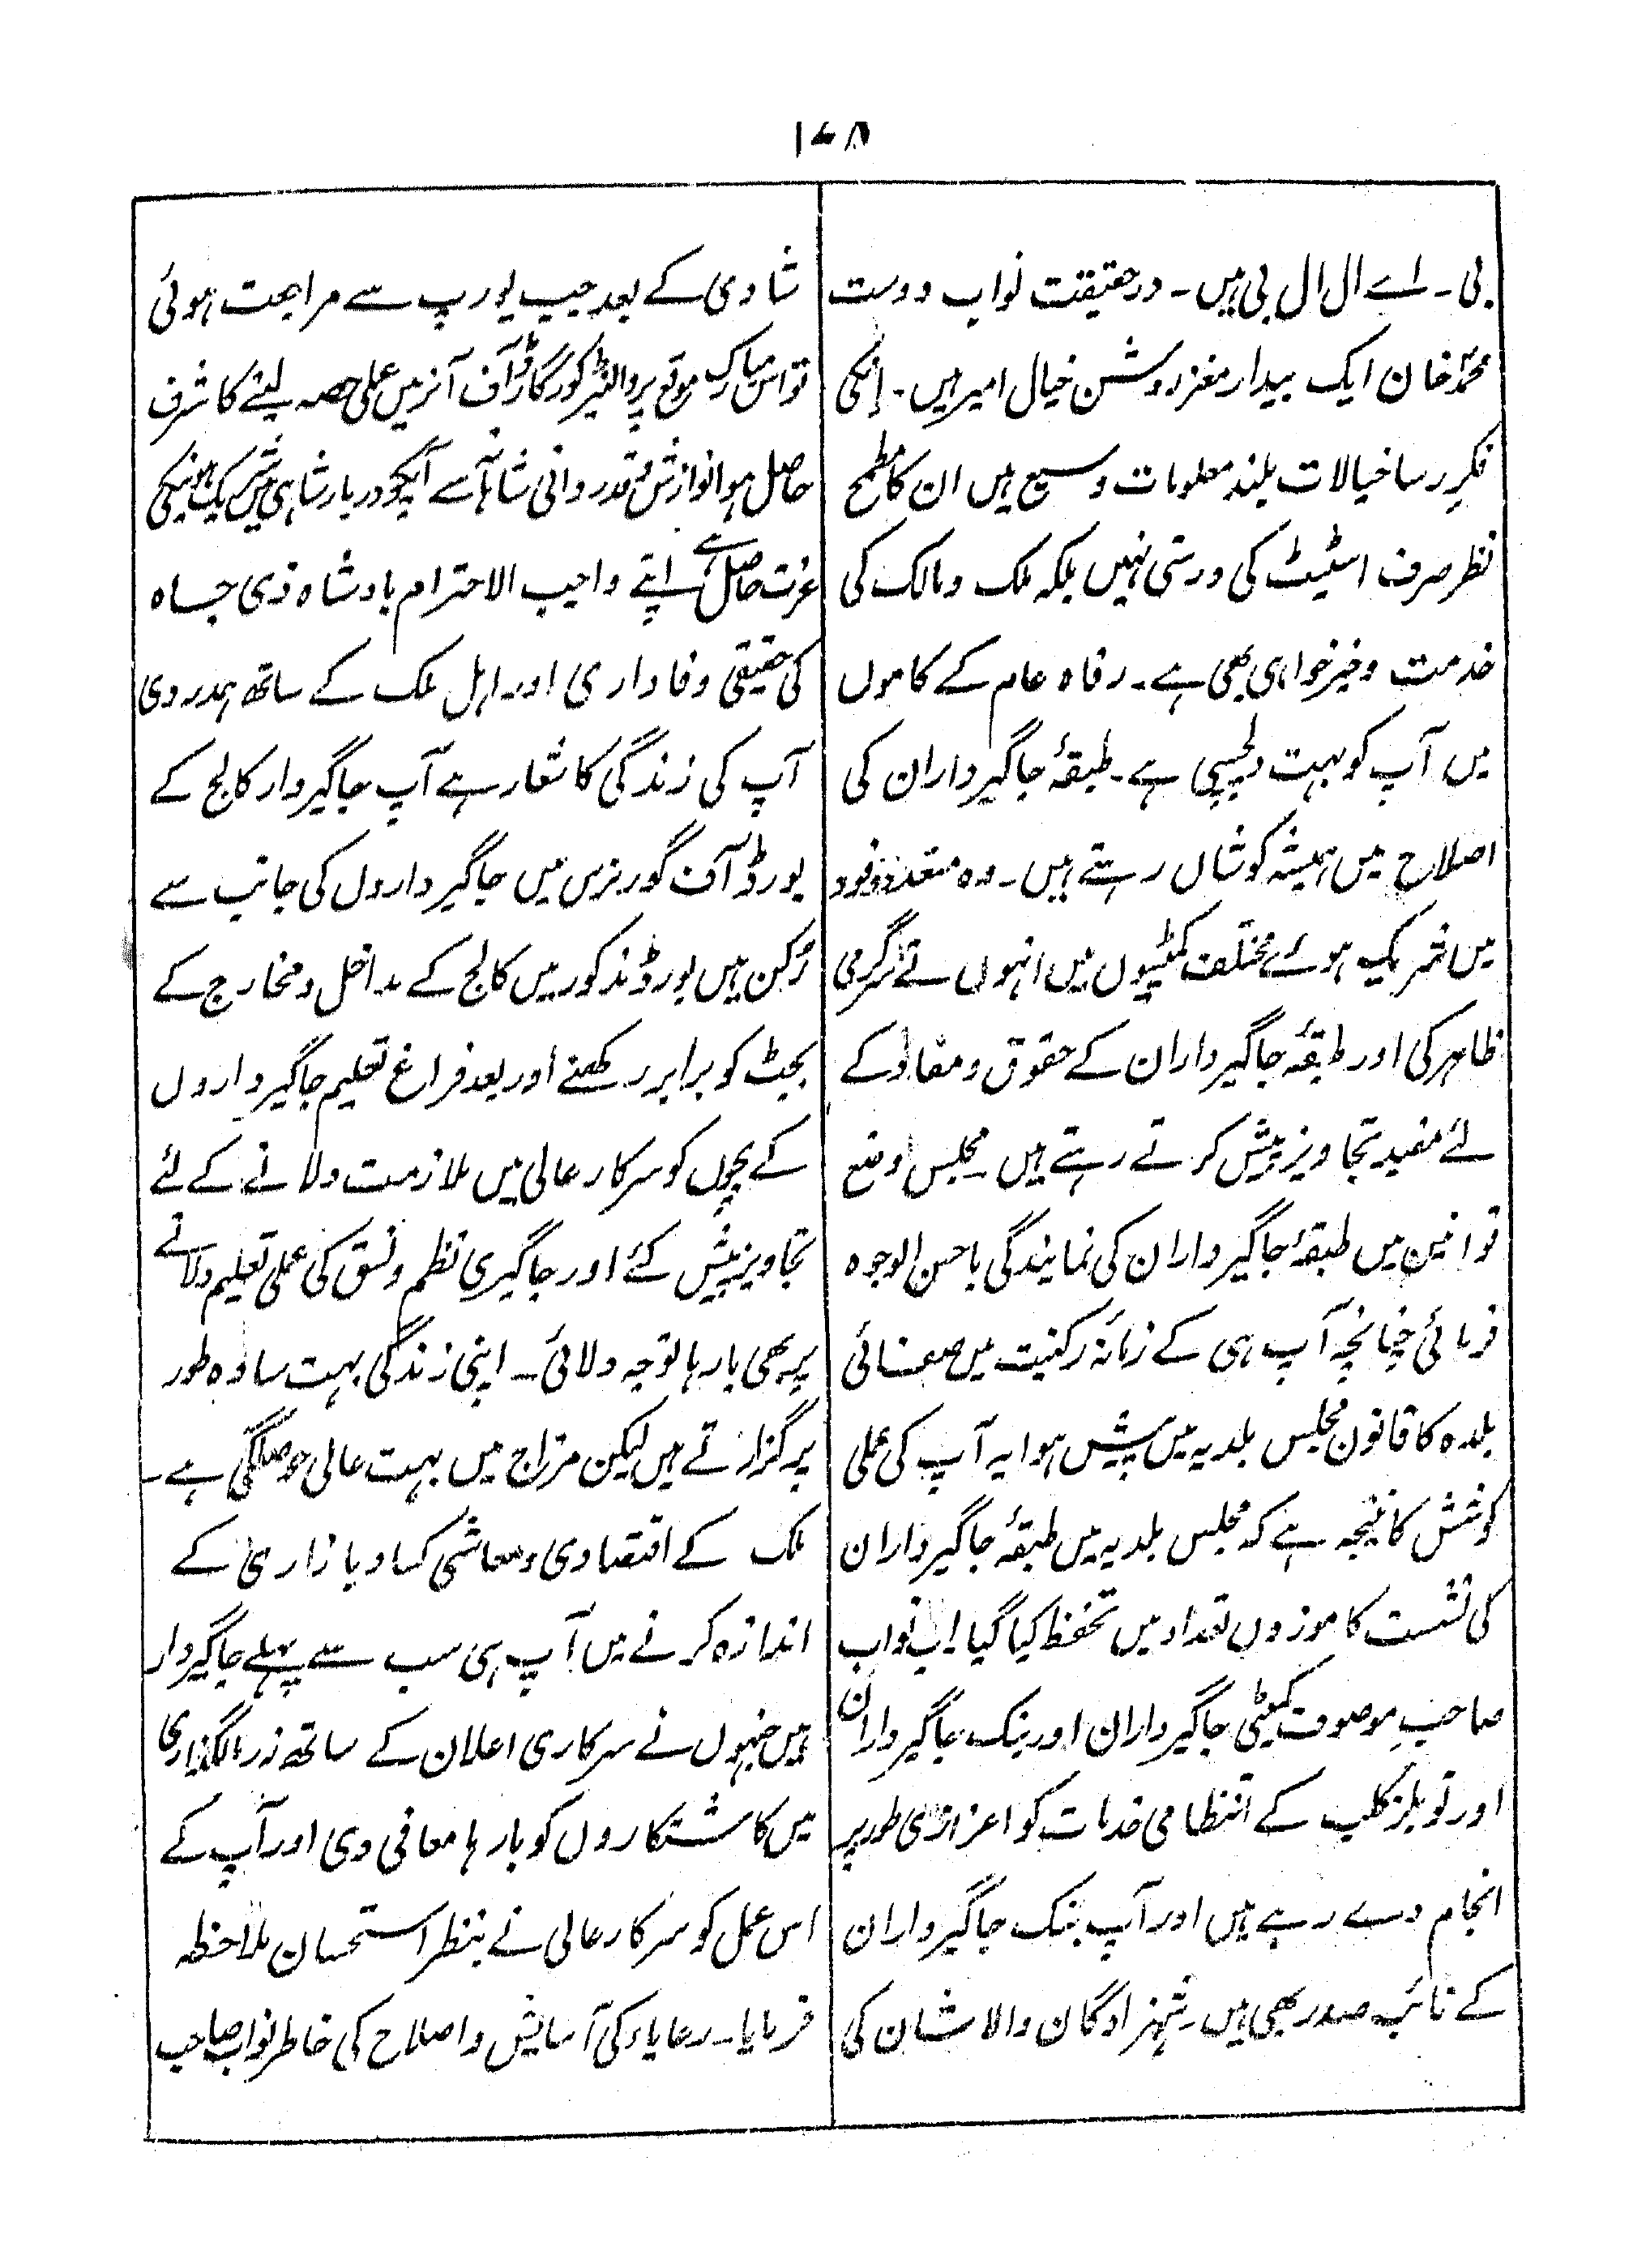 ۱۷۸
بی۔ اے ال ال بی ہیں۔ درحقیقت نواب دوست
محمد خان ایک بیدار مغز روشن خیال امیر ہیں۔ انکی
فکرِ رسا خیالات بلند معلومات وسیع ہیں ان کا مطمح
نظر صرف اسٹیٹ کی درستی نہیں بلکہ ملک و مالک کی
خدمت و خیر خواہی بھی ہے۔ رفاہ عام کے کاموں
میں آپ کو بہت دلچسپی ہے۔ طبقۂ جاگیرداران کی
اصلاح میں ہمیشہ کوشاں رہتے ہیں۔ وہ متعدد وفود
میں شریک ہوئے مختلف کمٹیوں میں انہوں نے سرگرمی
ظاہر کی اور طبقۂ جاگیرداران کے حقوق و مفاد کے
لئے مفید تجاویز پیش کرتے رہتے ہیں۔ مجلس وضع
قوانین میں طبقۂ جاگیرداران کی نمایندگی باحسن الوجوہ
فرمائی چنانچہ آپ ہی کے زمانۂ رکنیت میں صفائی
بلدہ کا قانون مجلس بلدیہ میں پیش ہوا یہ آپ کی عملی
کوشش کا نتیجہ ہے کہ مجلس بلدیہ میں طبقۂ جاگیرداران
کی نشست کا موزوں تعداد میں تحفظ کیا گیا اب نواب
صاحبِ موصوف کمیٹی جاگیرداران اور بنک جاگیرداران
اور نوبلز کلب کے انتظامی خدمات کو اعزازی طور پر
انجام دے رہے ہیں اور آپ بنک جاگیرداران
کے نائب صدر بھی ہیں۔ شہزادگان والا شان کی
شادی کے بعد جب یورپ سے مراجعت ہوئی
تو اس مبارک موقع پر والنٹیر کور گارڈ آف آنر میں عملی حصہ لینے کا شرف
حاصل ہوا نوازش و قدردانی شاہانہ سے آپکو دربار شاہی میں شریک ہونیکی
عزت حاصل ہے اپنے واجب الاحترام بادشاہ ذی جاہ
کی حقیقی وفاداری اور اہل ملک کے ساتھ ہمدردی
آپ کی زندگی کا شعار ہے آپ جاگیردار کالج کے
بورڈ آف گورنرس میں جاگیرداروں کی جانب سے
رُکن ہیں بورڈ مذکور میں کالج کے مداخل و مخارج کے
بجٹ کو برابر رکھنے اور بعد فراغ تعلیم جاگیرداروں
کے بچوں کو سرکار عالی میں ملازمت دلانے کے لئے
تجاویز پیش کئے اور جاگیری نظم و نسق کی عملی تعلیم دلانے
پر بھی بارہا توجہ دلائی۔ اپنی زندگی بہت سادہ طور
پر گزارتے ہیں لیکن مزاج میں بہت عالی حوصلگی ہے۔
ملک کے اقتصادی و معاشی کساد بازاری کے
اندازہ کرنے میں آپ ہی سب سے پہلے جاگیردار
ہیں جنہوں نے سرکاری اعلان کے ساتھ زر مالگذاری
میں کاشتکاروں کو بارہا معافی دی اور آپ کے
اس عمل کو سرکار عالی نے بنظر استحسان ملاحظہ
فرمایا۔ رعایاء کی آسایش و اصلاح کی خاطر نواب صاحب